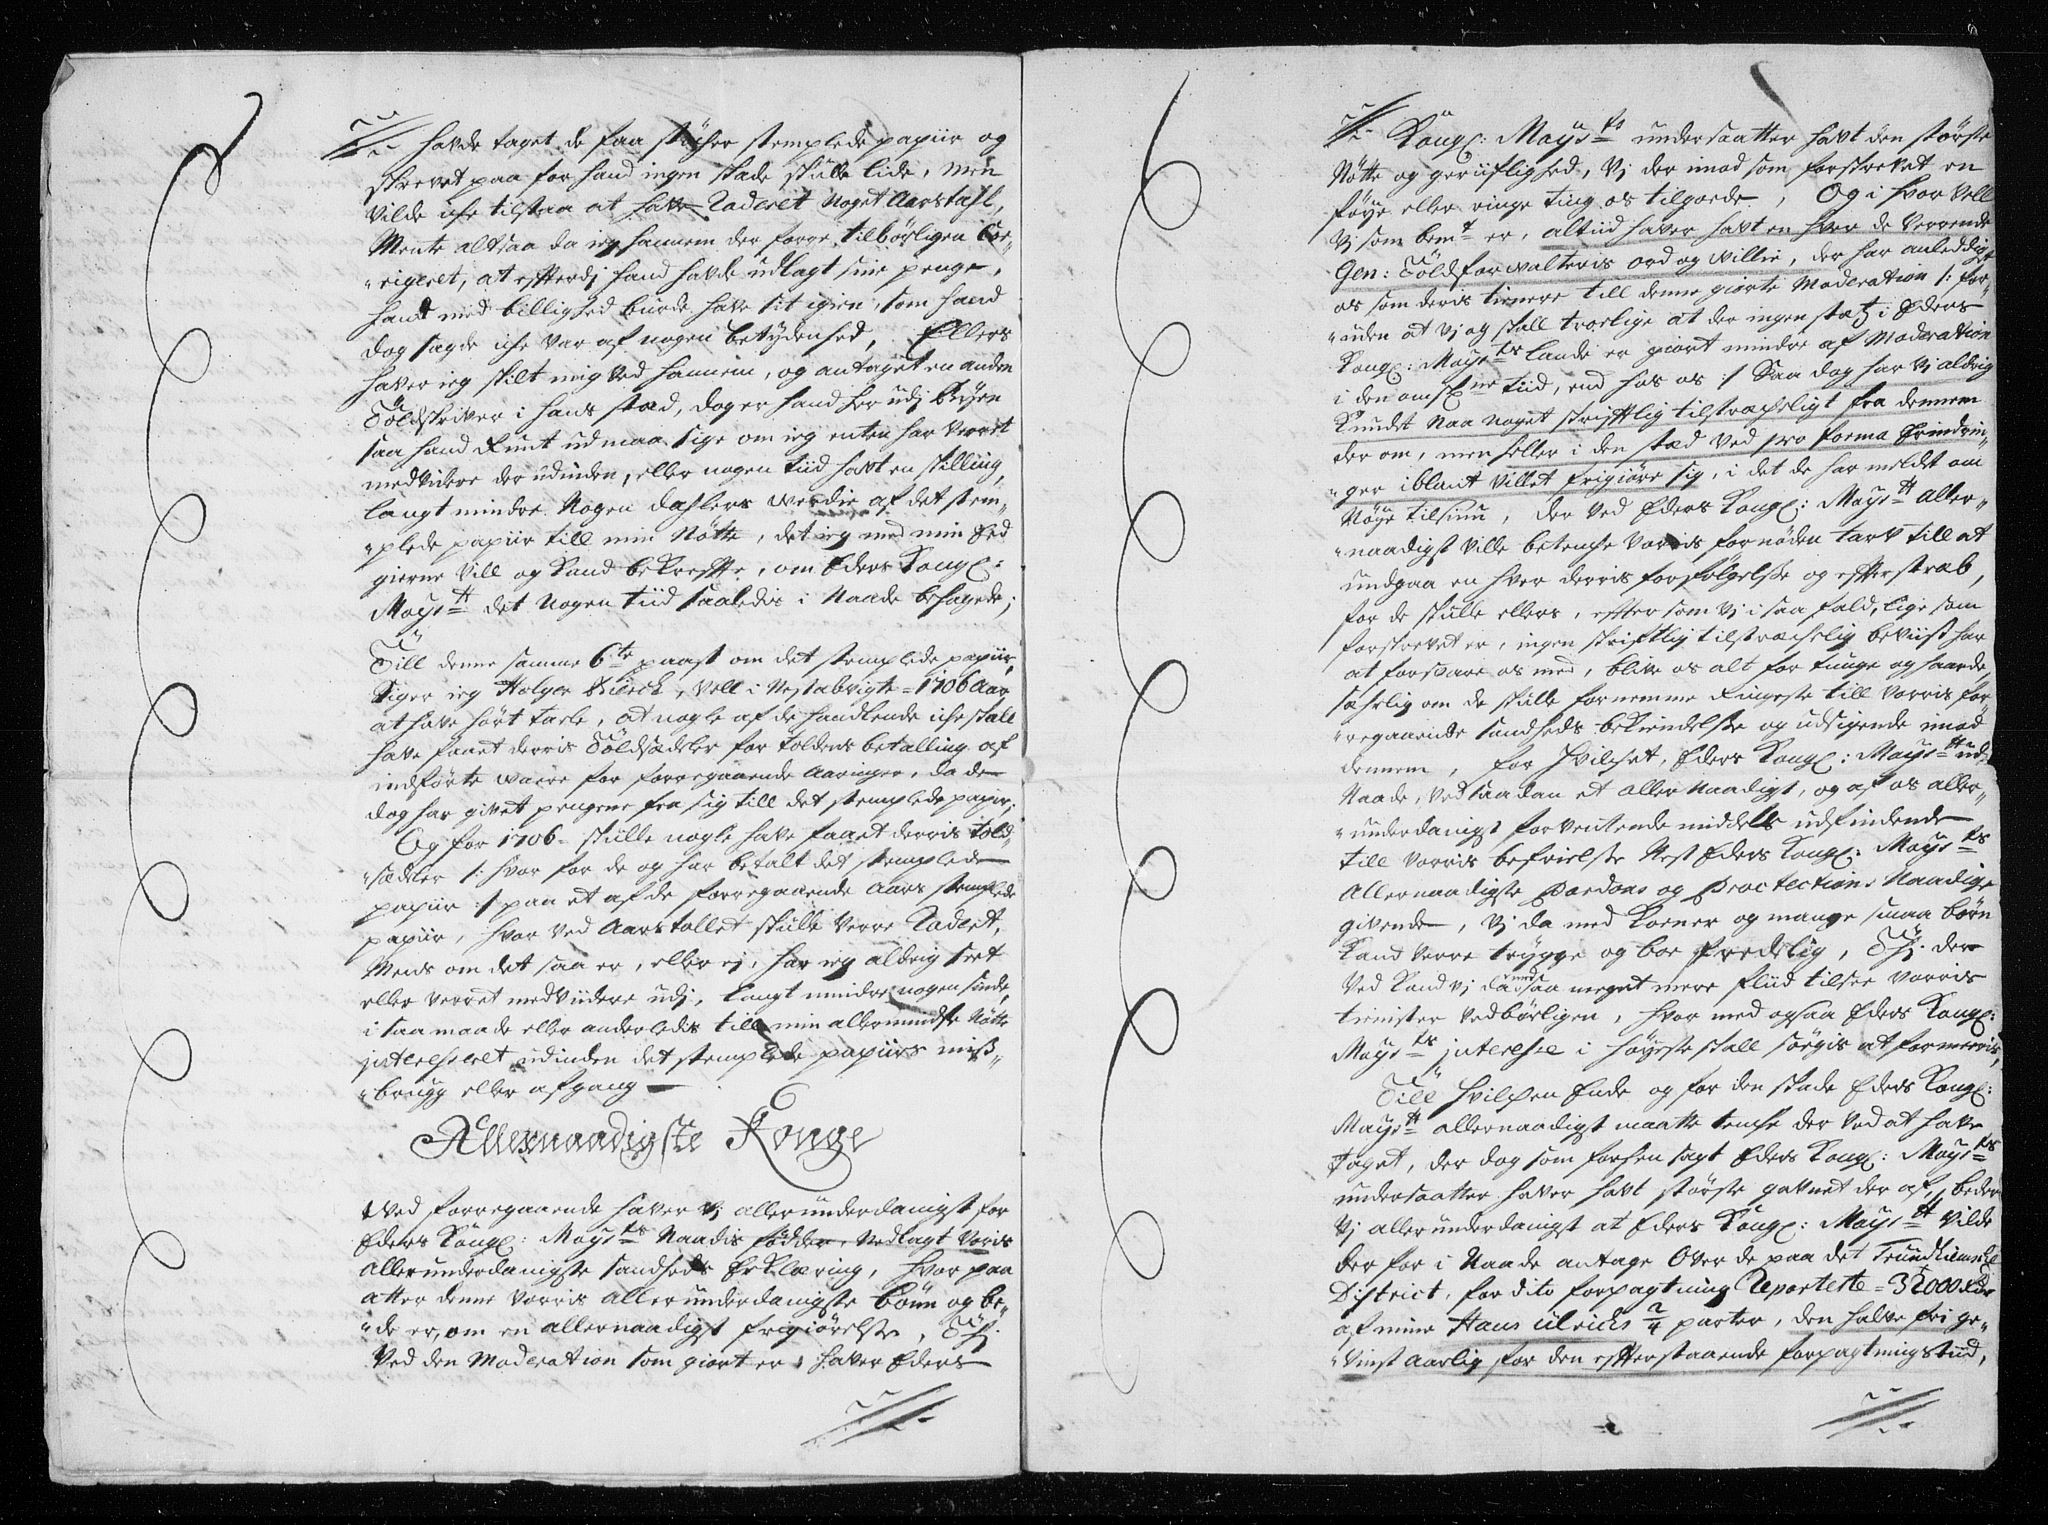 hafde taget de faa stÿcher stemplede papiir og
skrevet paa for hand ingen skade skulle lide, men
vilde iche tilstaa at hafve Raderet noget Aarstahl,
Mente altsaa da ieg hannem der forre, tilbørligen Cor-
-rigeret, at efterdj hand hafde udlagt sine penge,
hand med billighed burde hafve sit igien, som hand
dog sagde iche var af nogen betydenhed, Ellers
hafver ieg skilt mig ved hannem, og antaget en anden
Toldskriver i hans sted, dog er hand her udj Byen
saa hand Rundt ud maa sige om ieg enten har veret
medvidere der udinden, eller nogen tiid hafvt en skilling,
langt mindre Nogen dahlers werdie af det stem-
-plede papiir till min Nÿtte, det ieg med min Eed
gierne vill og Kand bekrefte, om Eders Kongl:
Mayst det Nogen tiid saaledis i Naade behagede;
Till denne samme 6te post om det stemplede papiir,
Siger ieg Holger , vell i Nestafvigte 1706 Aar
at hafve hørt tale, at nogle af de handlende iche skall
hafve faaet derris Toldsedeler for toldens betalling af
indførte ware for forregaaende Aaringer, da de
dog har givet pengene fra sig till det stemplede papiir;
Og for 1706 skulle nogle hafve faaet derris told-
-sedeler /: hvor for de og har betalt det stemplede
papiir :/ paa et af de forregaaende Aars stemplede
papiir, hvor ved Aarstallet skulle verre Radert,
Mens om det saa er, eller ej, har ieg aldrig seet
eller verret medvidere udj, langt mindre nogensinde,
i saa maade eller anderledis till min allermindste Nÿtte
jnteresseret udinden det stemplede papiirs miss-
-brug eller afgang
Allernaadigste Konge
Ved forregaaende hafver vj allerunderdanigst for
Eders Kongl: Maysts Naadis fødder, nedlagt voris
Allerunderdanigste sandheds Erklæring, hvor paa
atter denne vorris allerunderdanigste bøn og be-
-de er, om en allernaadigst frigiørelse, Thj
Ved den Moderation som giort er, hafver Eders
Kongl: Maysts undersaatter hafvt den største
Nÿtte og geruflighed, Vj der imod som forskrevet en
føye eller ringe ting os tilgode, Og i hvor vell
vj som bemt er, altiid hafver hafvt en hver de verrende
Gen: Toldforwalteris ord og villie, der har anlediget
os som deris tienere till denne giorte Moderation /: for-
-uden at vj og skall trolige at der ingen stæd i Eders
Kongl: Maysts Lande er giort mindre af Moderation
i den omsne tiid, end hos os :/ Saa dog har vj aldrig
Kundet Naa noget skriftlig tilstrecheligt fra dennem
der om, men heller i den stæd ved pro forma Erindrin-
-ger iblant villet frigiøre sig, i det de har meldet om
Nøye tilsiun, Der ved Eders Kongl: Mayst Aller-
-naadigst ville betenche vorris fornøden tarv till at
undgaa en hver derris forfølgelse og efterstræb,
for de skulle ellers, efter som vj i saa fald, lige som
forskrevet er, ingen skriftlig tilstrechelig beviis har
at forsvare os med, blive os alt for tunge og haarde,
særlig om de skulle fornemme Ringeste till vorris for-
-regaaende sandheds bekiendelse og udsigende imod
dennem, for hvilchet, Eders Kongl: Mayst ud
Naade, ved saadan et aller Naadigst, og af os aller-
-underdanigst forventende middels udfindende
till vorris befrielse Nest Eders Kongl: Maysts
Allernaadigste Pardons og Proctections Naadige
givende, vj da med Koener og mange smaa børn
Kand verre trÿgge og boe fredelig, Thj der
ved Kand vj da med saa meget mere fliid tilsee vorris
tienister vedbørligen, hvor med ogsaa Eders Kongl:
Maysts jnteresse i høyeste skall søgis at formeeris,
Till hvilchen Ende og for den skade Eders Kongl:
Mayst allernaadigst maatte tenche der ved at hafve
taget, der dog som forhen sagt Eders Kongl: Maysts
undersaatter hafver hafvt største gavnet der af, beder
vj allerunderdanigst at Eders Kongl: Mayst vilde
der for i Naade antage Over de paa det Trundhiemske
District, for dito forpagtning Reparterte 32000 Rdr
af mine Hans Ulrichs 2/4 parter, den halve fri ge-
-vinst aarlig for den efterstaaende forpagtnings tiid,